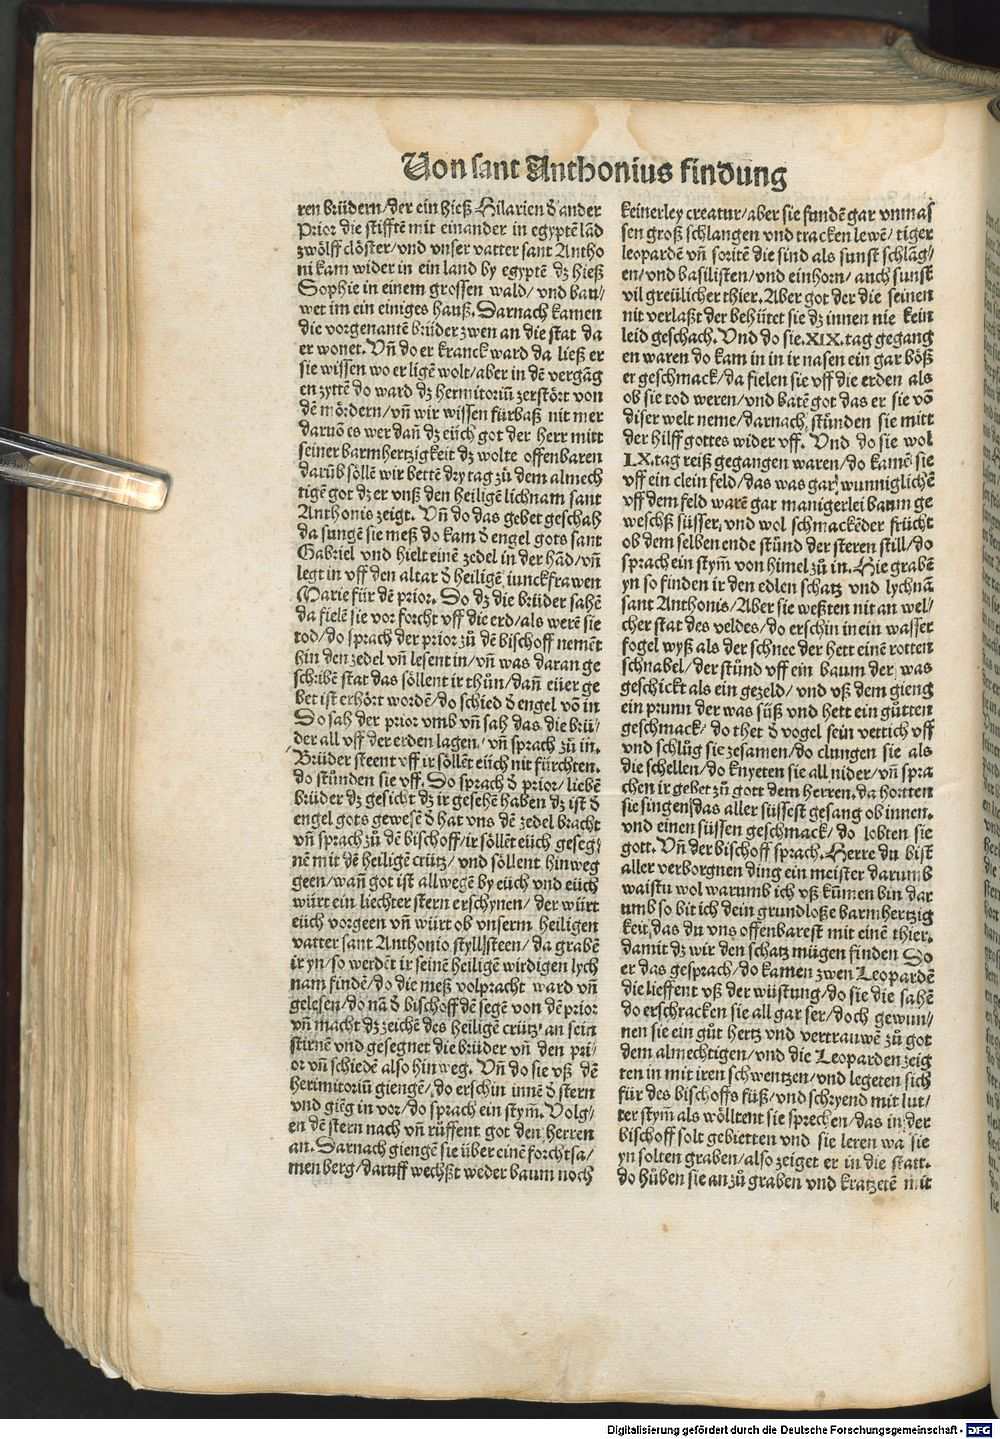 Von sant Anthonius findung
ren brüdern/der ein hieß Hilarien d̕ ander
Prior die stifftē mit einander in egyptē lād
zwölff clöster/vnd vnser vatter sant Antho
ni kam wider in ein land by egyptē dz hieß
Sophie in einem grossen wald/ vnd bau/
wet im ein einiges hauß. Darnach kamen
die vorgenantē brüder zwen an die stat da
er wonet. Vn̄ do er kranck ward da ließ er
sie wissen wo er ligē wolt/aber in dē vergāg
en zyttē do ward dz hermitoriū zerstört von
dē mördern/vn̄ wir wissen fürbaß nit mer
daruō es wer dan̄ dz eüch got der herr mitt
seiner barmhertzigkeit dz wolte offenbaren
darūb söllē wir bettē dry tag zů dem almech
tigē got dz er vnß den heiligē lichnam sant
Anthonis zeigt. Vn̄ do das gebet geschah
da sungē sie meß do kam d̕ engel gots sant
Gabriel vnd hielt einē zedel in der hād/vn̄
legt in vff den altar d̕ heiligē iunckfrawen
Marie für dē prior. So dz die brüder sahē
da fielē sie vor forcht vff die erd/als werē sie
tod/do sprach der prior zů dē bischoff nemēt
hin den zedel vn̄ lesent in/vn̄ was daran ge
schribē stat das söllent ir thůn/dan̄ eüer ge
bet ist erhört wordē/do schied d̕ engel vō in
So sah der prior vmb vn̄ sah das die brü/
der all vff der erden lagen/ vn̄ sprach zů in.
Brüder steent vff ir söllēt eüch nit fürchten.
do stůnden sie vff. So sprach d̕ prior/liebē
brüder dz gesicht dz ir gesehē haben dz ist d̕
engel gots gewesē d̕ hat vns dē zedel bracht
vn̄ sprach zů dē bischoff/ir söllēt eüch geseg/
nē mit dē heiligē crütz/ vnd söllent hinweg
geen/wan̄ got ist allwegē by eüch vnd eüch
würt ein liechter stern erschynen/ der würt
eüch vorgeen vn̄ würt ob vnserm heiligen
vatter sant Anthonio styll steen/ da grabē
ir yn/so werdēt ir seinē heiligē wirdigen lych
nam findē/do die meß volpracht ward vn̄
gelesen/do nā d̕ bischoff dē segē von dē prior
vn̄ macht dz zeichē des heiligē crütz' an sein
stirnē vnd gesegnet die brüder vn̄ den pri/
or vn̄ schiedē also hinweg. Vn̄ do sie vß dē
herimitoriū giengē/do erschin innē d̕ stern
vnd giēg in vor/do sprach ein stym̄. Volg/
en dē stern nach vn̄ rüffent got den herren
an. Darnach giengē sie über einē forchtsa/
men berg/daruff wechßt weder baum noch
keinerley creatur/aber sie fundē gar vnmas
sen groß schlangen vnd tracken lewē/ tiger
leopardē vn̄ soritē die sind als sunst schlāg/
en/vnd basilisten/vnd einhorn/ auch sunst
vil greülicher thier. Aber got der die seinen
nit verlaßt der behütet sie dz innen nie kein
leid geschach. Vnd do sie.XIX.tag gegang
en waren do kam in in ir nasen ein gar böß
er geschmack/da fielen sie vff die erden als
ob sie tod weren/vnd batē got das er sie vō
diser welt neme/darnach stůnden sie mitt
der hilff gottes wider vff. Vnd do sie wol
LX.tag reiß gegangen waren/do kamē sie
vff ein clein feld/das was gar wunniglichē
vff dem feld warē gar manigerlei baum ge
weschß süsser, vnd wol schmackēder frücht
ob dem selben ende stůnd der steren still/do
sprach ein stym̄ von himel zů in. Hie grabē
yn so finden ir den edlen schatz vnd lychnā
sant Anthonis/Aber sie weßten nit an wel/
cher stat des veldes/do erschin in ein wasser
fogel wyß als der schnee der hett einē rotten
schnabel/der stůnd vff ein baum der was
geschickt als ein gezeld/ vnd vß dem gieng
ein prunn der was süß vnd hett ein gůtten
geschmack/ do thet d̕ vogel sein vettich vff
vnd schlůg sie zesamen/do clungen sie als
die schellen/do knyeten sie all nider/vn̄ spra
chen ir gebet zů gott dem herren. da hortten
sie singen das aller süssest gesang ob innen.
vnd einen süssen geschmack/ do lobten sie
gott. Vn̄ der bischoff sprach. Herre du bist
aller verborgnen ding ein meister darumb
waistu wol warumb ich vß kūmen bin dar
umb so bit ich dein grundloße barmhertzig
keit, das du vns offenbarest mit einē thier.
damit dz wir den schatz mügen finden So
er das gesprach/do kamen zwen Leopardē
die lieffent vß der wüstung/do sie die sahē
do erschracken sie all gar ser/doch gewun/
nen sie ein gůt hertz vnd vertrauwē zů got
dem almechtigen/vnd die Leoparden zeig
ten in mit iren schwentzen/vnd legeten sich
für des bischoffs füß/vnd schryend mit lut/
ter stym̄ als wölltent sie sprechen/das in der
bischoff solt gebietten vnd sie leren wa sie
yn solten graben/also zeiget er in die statt.
do hůben sie an zů graben vnd kratzetē mit
Digitalisierung gefördert durch die Deutsche Forschungsgemeinschaft - DFG